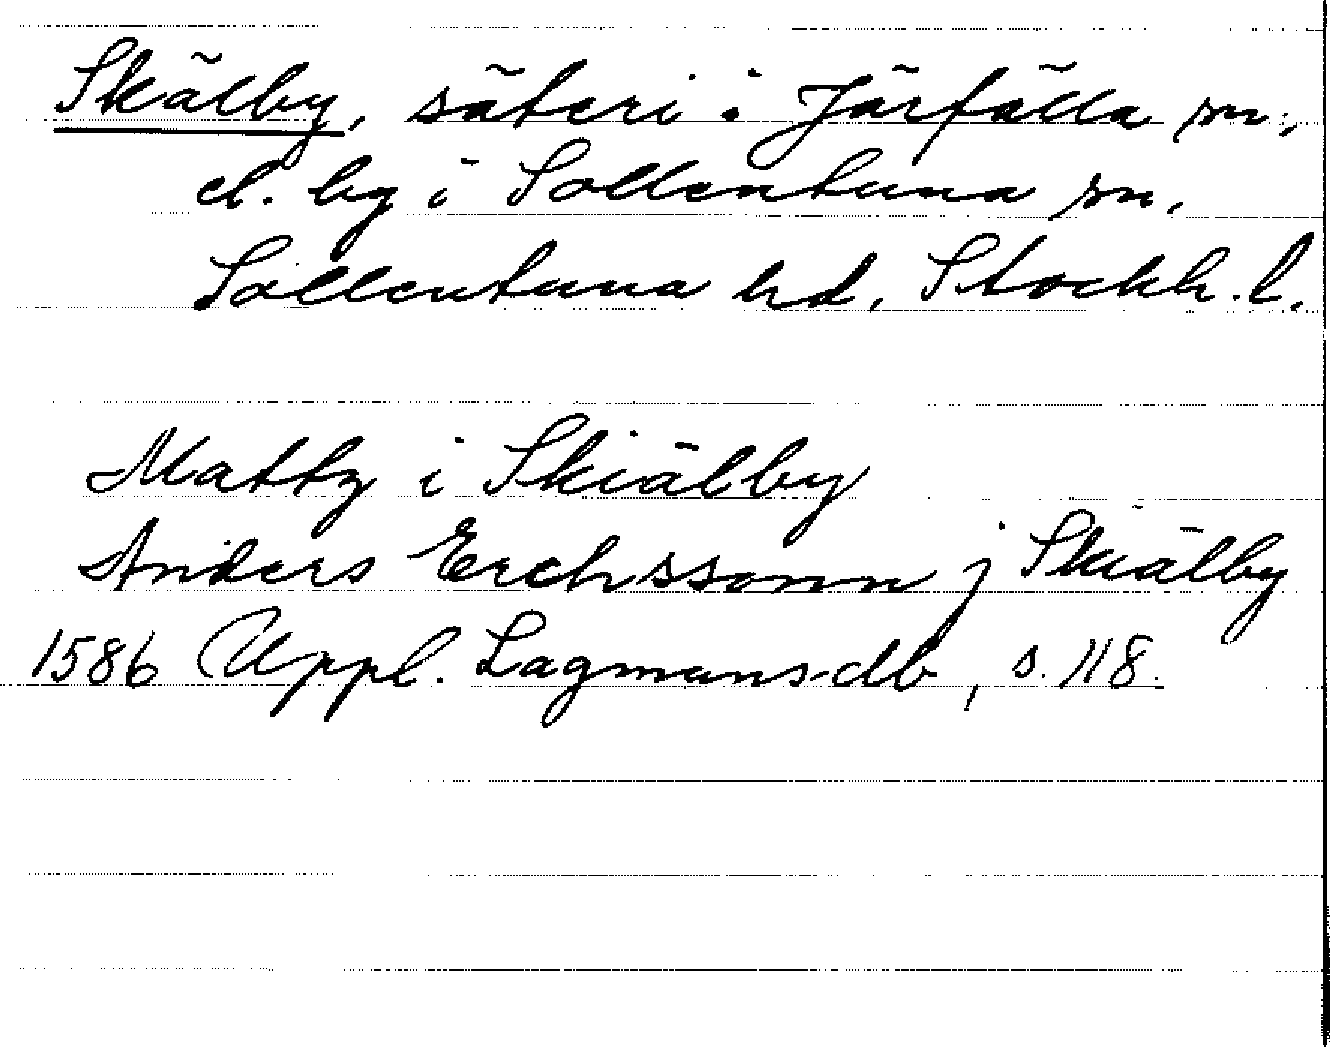 Skälby, säteri i Järfälla sn.,
el. by i Sollentuna sn,
Sollentuna hd, Stockh. l.
Mattz i Skiälby
Anders Erchssonn j Skiälby
1586 Uppl. Lagmansdb, s. 118.